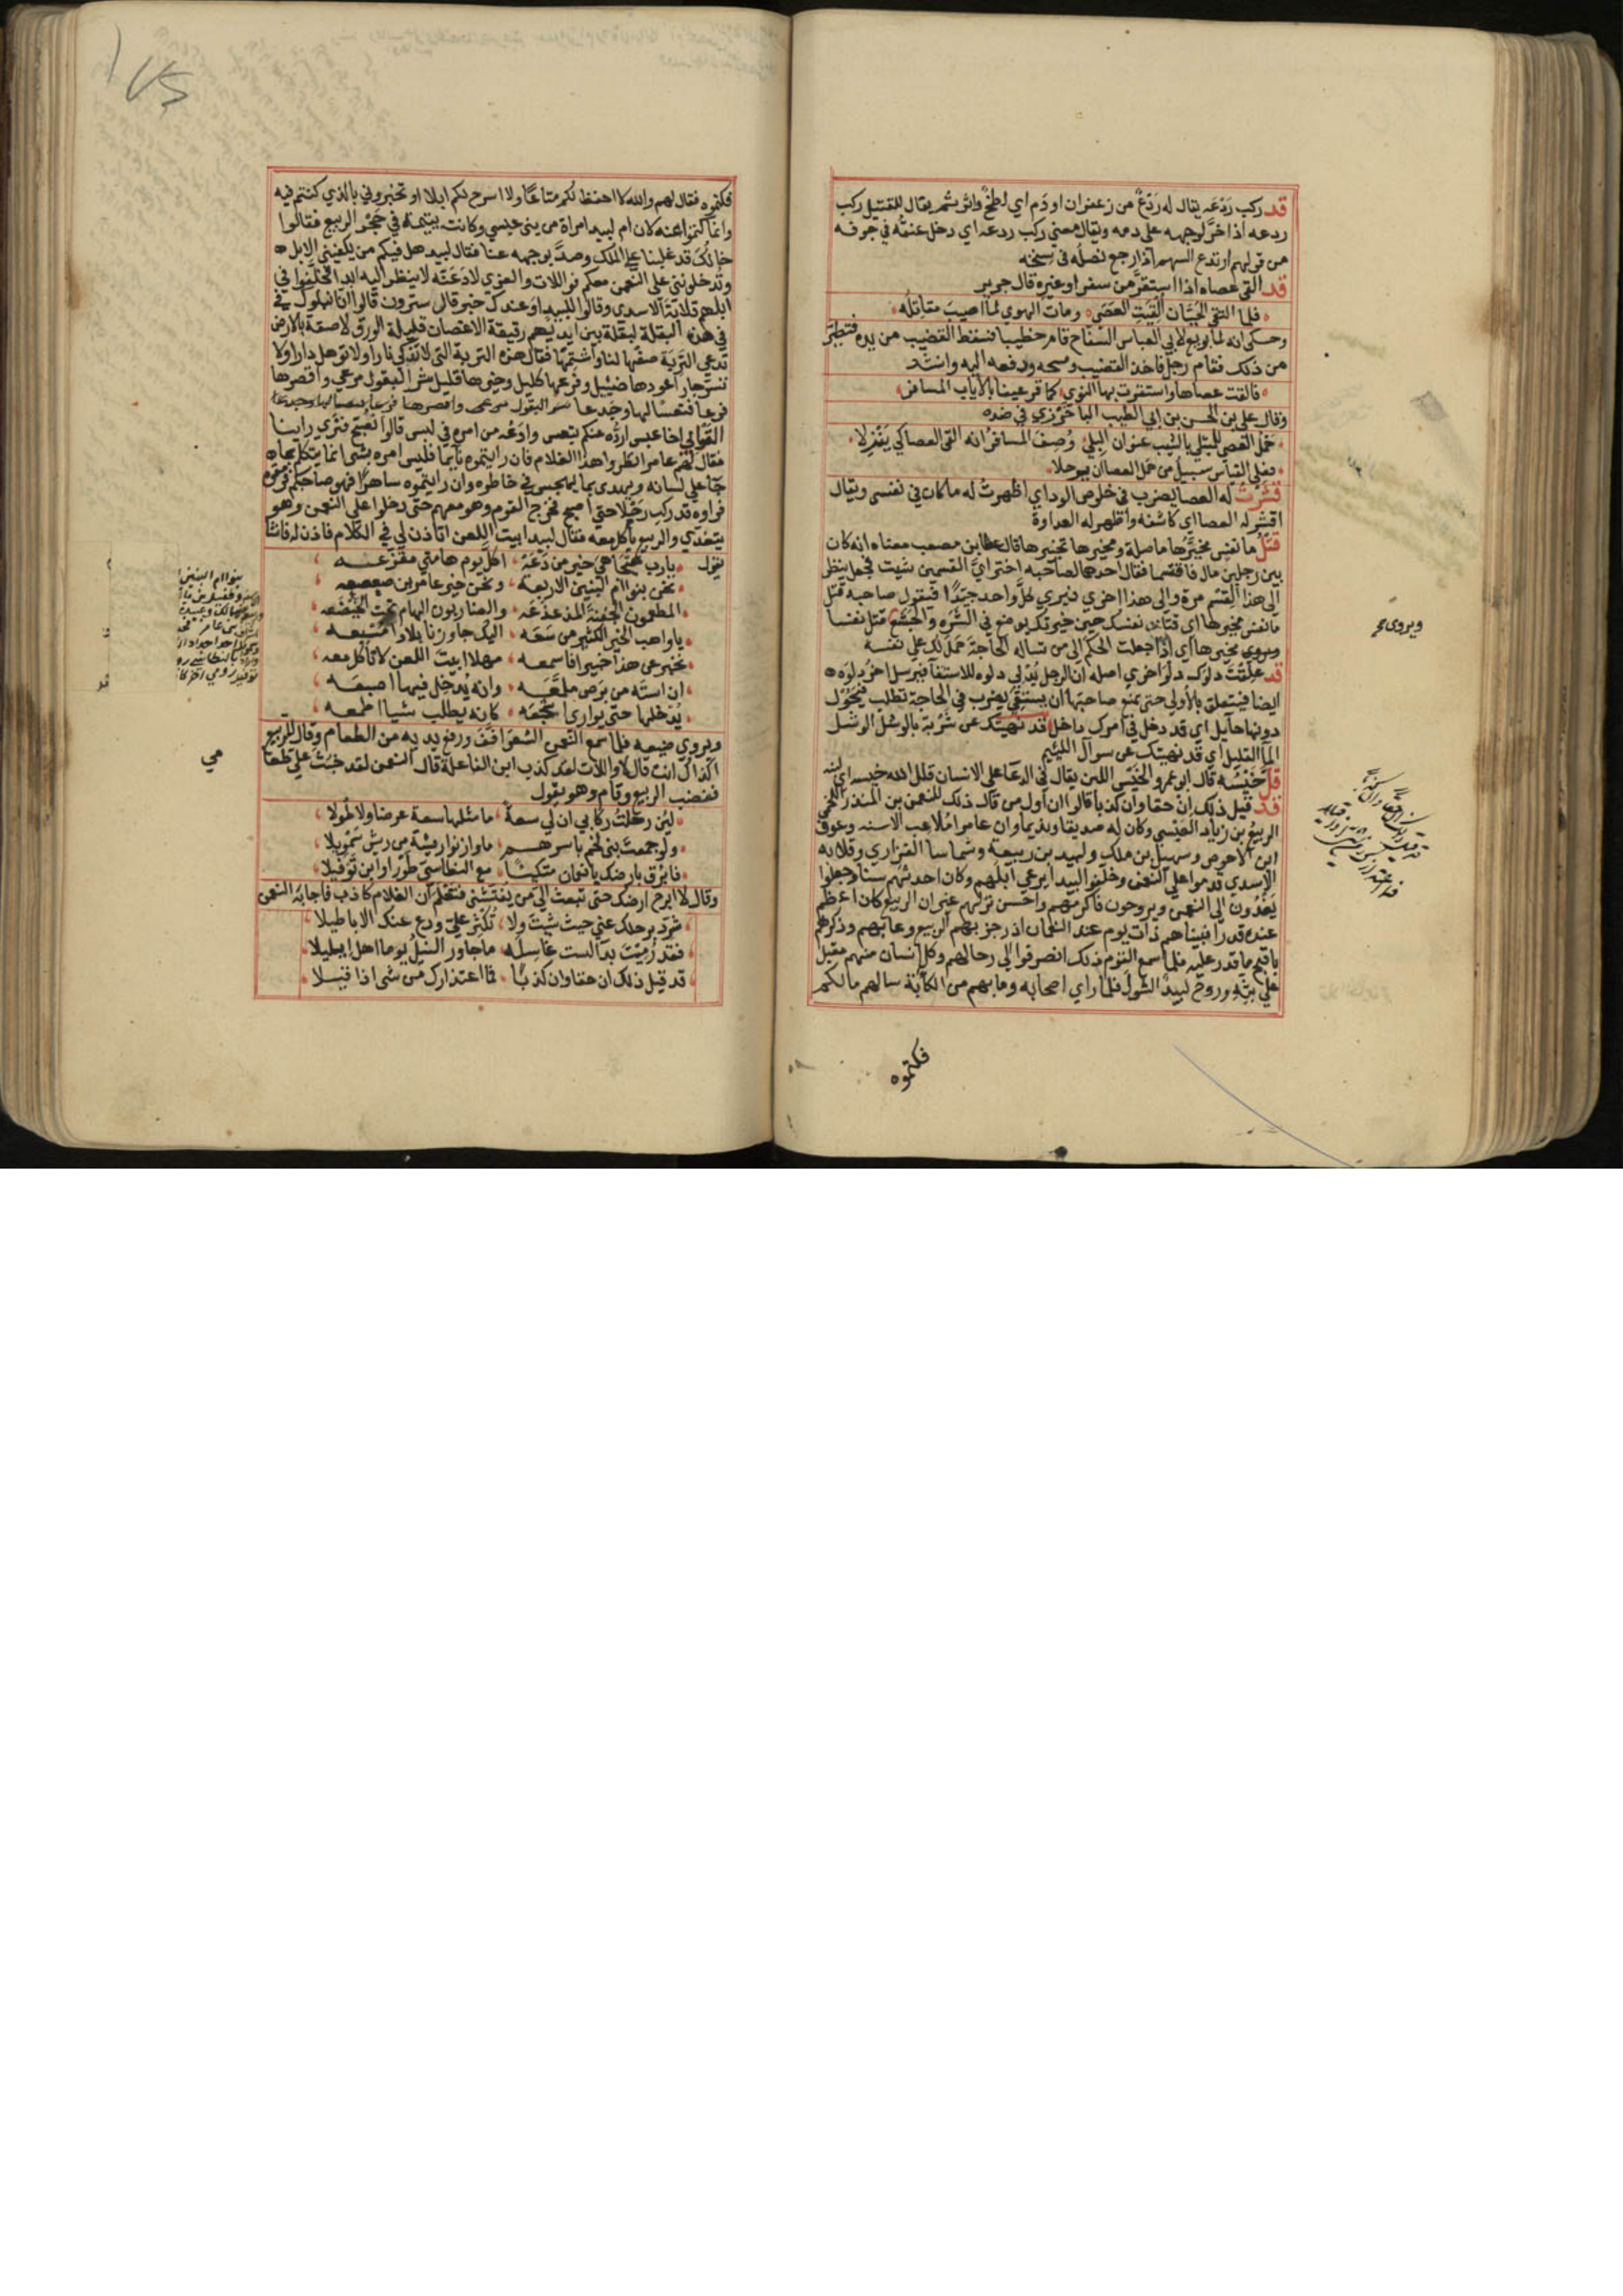 قد ركب ردعه يقال له ردع من زعفران او دم اي لطخ واثر ثم يقال للقتيل ركب
ردعه اذا خر لوجهه على دمه ويقال معنى ركب ردعه اي دخل عنقه في جوفه
من قولهم ارتدع السهم اذا رجع نصله في سنخه
قد القى عصاه اذا استقر من سفر او غيره قال جرير
فلما التقى الحيان القيت العصى ومات الهوي لما اصيب مقاتله
وحكى انه لما بويع لابي العباس السفاح قام خطيبا فسقط القضيب من يده فتطير
من ذلك فقام رجل فاخذ القضيب ومسحه ودفعه اليه وانشد
فالقت عصاها واستقرت بها النوي كما قر عينا بالاياب المسافر
وقال علي بن الحسن بن ابي الطيب الباخرزي في ضده
حمل العصى للمبتلي بالشيب عنوان البلي وصف المسافر انه القى العصا كي ينزلا
فعلي القياس سبيل من حمل العصا ان يرحلا
قشرت له العصا يضرب في خلوص الود اي اظهرت له ما كان في نفسي ويقال
اقشر له العصا اي كاشفه واظهر له العداوة
قتل ما نفس مخيرها ما صلة ومخيرها تخييرها قال عطا بن مصعب معناه انه كان
بين رجلين مال فاقتسما فقال احدهما لصاحبه اختر اي القسمين شيت فجعل ينظر
الى هذا القسم مرة والى هذا اخري فيري كل واحد جيدا فيقول صاحبه قتل
ما نفس مخيرها اي قتلت نفسك حين خيرتك يوضع في الشره والجشع قتل نفسا
ويروي مخيرها اي اذا جعلت الحكم الى من تساله الحاجة حمل لك على نفسه
قد علقت دلوك دلو اخري اصله ان الرجل يدلي دلوه للاستقا فيرسل اخر دلوه
ايضا فيتعلق بالاولى حتى تمنع صاحبها ان يستقي يضرب في الحاجة تطلب فيحول
دونها حايل اي قد دخل في امرك داخل قد نهيتك عن شربة بالوشل الوشل
الما القليل اي قد نهيتك عن سوال اللئيم
قل خيسه قال ابو عمرو الخيس اللبن يقال في الدعا على الانسان قلل الله خيسه اي لبنه
قد قيل ذلك ان حقا وان كذبا قالوا ان اول من قال ذلك النعمن بن المنذر اللخمي
الربيع بن زياد العبسي وكان له صديقا ونديما وان عامرا ملاعب الاسنه وعوف
ابن الاحوص وسهيل بن ملك ولبيد بن ربيعة وشماسا الفزاري وقلابه
الاسدي قدموا على النعمن وخلفوا لبيدا يرعي ابلهم وكان احدثهم سنا وجعلوا
يغدون الى النعمن ويروحون فاكرمهم واحسن نزلهم غير ان الربيع كان اعظم
عنده قدرا فبيناهم ذات يوم عند النعمان اذ رجز بهم الربيع وعابهم وذكرهم
باقبح ما قدر عليه فلما سمع القوم ذلك انصرفوا الى رحالهم وكل انسان منهم مقبل
علي بثه وروح لبيد الشول فلما راي اصحابه وما بهم من الكآبة سالهم مالكم
فكتموه
ويروى
فكتموه فقال لهم والله لا احفظ لكم متاعا ولا اسرح لكم ابلا او تخبروني بالذي كنتم فيه
وانما كتموا عنه لان ام لبيد امراة من بني عبس وكانت يتيمة في حجر الربيع فقالوا
خالك قد غلبنا على الملك وصد بوجهه عنا فقال لبيد هل فيكم من يكفيني الابل
وتدخلونني على النعمن معكم فواللات والعزي لادعنه لا ينظر اليه ابدا فخلفوا في
ابلهم قلابة الاسدي وقالوا للبيد اوعندك خير قال سترون قالوا انا نبلوك في
في هذه البقلة لبقلة بين ايديهم رقيقة الاغصان قليلة الورق لاصقة بالارض
تدعي التربة صفها لنا واشتمها فقال هذه التربة التي لا تذكي نارا ولا توهل دارا ولا
تستر جارا عودها ضئيل وفرعها كليل وخيرها قليل شر البقول مرعي واقصرها
فرعا فتعسا لها وجدعا
القوا بي اخا عبس ارده عنكم بتعس وادعه من امره في لبس قالوا نصبح فنري راينا
فقال لهم عامر انظروا هذا الغلام فان رايتموه نايما فليس امره بشي انما يتكلم بما
جا على لسانه ويهذي بما يهجس في خاطره وان رايتموه ساهرا فهو صاحبكم فرمقوه
فراوه قد ركب رحلا حتى اصبح فخرج القوم وهو معهم حتى دخلوا على النعمن وهو
يتغدي والربيع ياكل معه فقال لبيد ابيت اللعن اتاذن لي في الكلام فاذن له فانشا
يقول يارب هيجا هي خير من دعة اكل يوم هامتي مقزعه
نحن بنو ام البنين الاربعة ونحن خير عامر بن صعصعه
المطعمون الجفنة المدعدعه والضاربون الهام تحت الخيضعه
يا واهب الخير الكثير من سعه اليك جاوزنا بلادا مسبعه
نخبر عن هذا خبيرا فاسمعه مهلا ابيت اللعن لا تاكل معه
ان استه من برص ملمعه وانه يدخل فيها اصبعه
يدخلها حتى يواري اشجعه كانه يطلب شيا اطمعه
ويروي ضيعه فلما سمع النعمن الشعر افف ورفع يديه من الطعام وقال للربيع
اكذاك انت قال لا واللات لقد كذب ابن الفاعلة قال النعمن لقد خبث علي طعامي
فغضب الربيع وقام وهو يقول
لئن رحلت ركابي ان لي سعة ما مثلها سعة عرضا ولا طولا
ولو جمعت بني لخم باسرهم ما وازنوا ريشة من ريش سمويلا
فابرق بارضك يا نعمان متكئا مع النطاسي طورا وابن توفيلا
وقال لا ابرح ارضك حتى تبعث الي من يفتشني فتعلم ان الغلام كاذب فاجابه النعمن
شرد برحلك عني حيث شيت ولا تكثر علي ودع عنك الاباطيلا
فقد رميت بدآ لست غاسله ما جاور النيل يوما اهل ابليلا
قد قيل ذلك ان حقا وان كذبا فما اعتذارك من شي اذا قيلا
بنو ام البنين